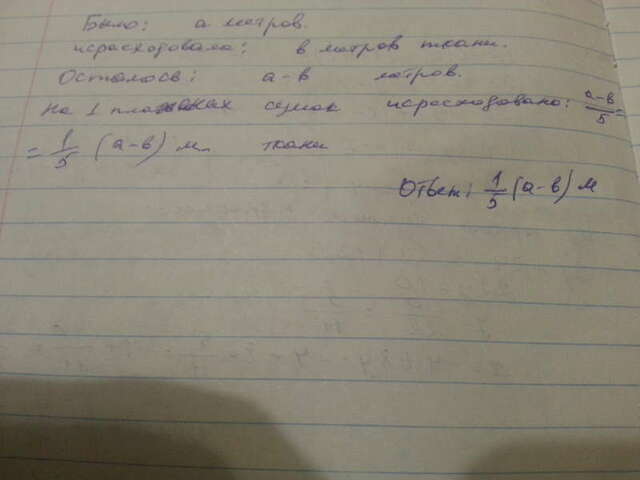 Было: а метров.
израсходовала: в метров ткани.
Осталось: а-в метров.
На 1 сумок израсходовано: \frac{а-в}{5} =
= \frac{1}{5} (а-в) м. ткани
Ответ: \frac{1}{5} (а-в) м